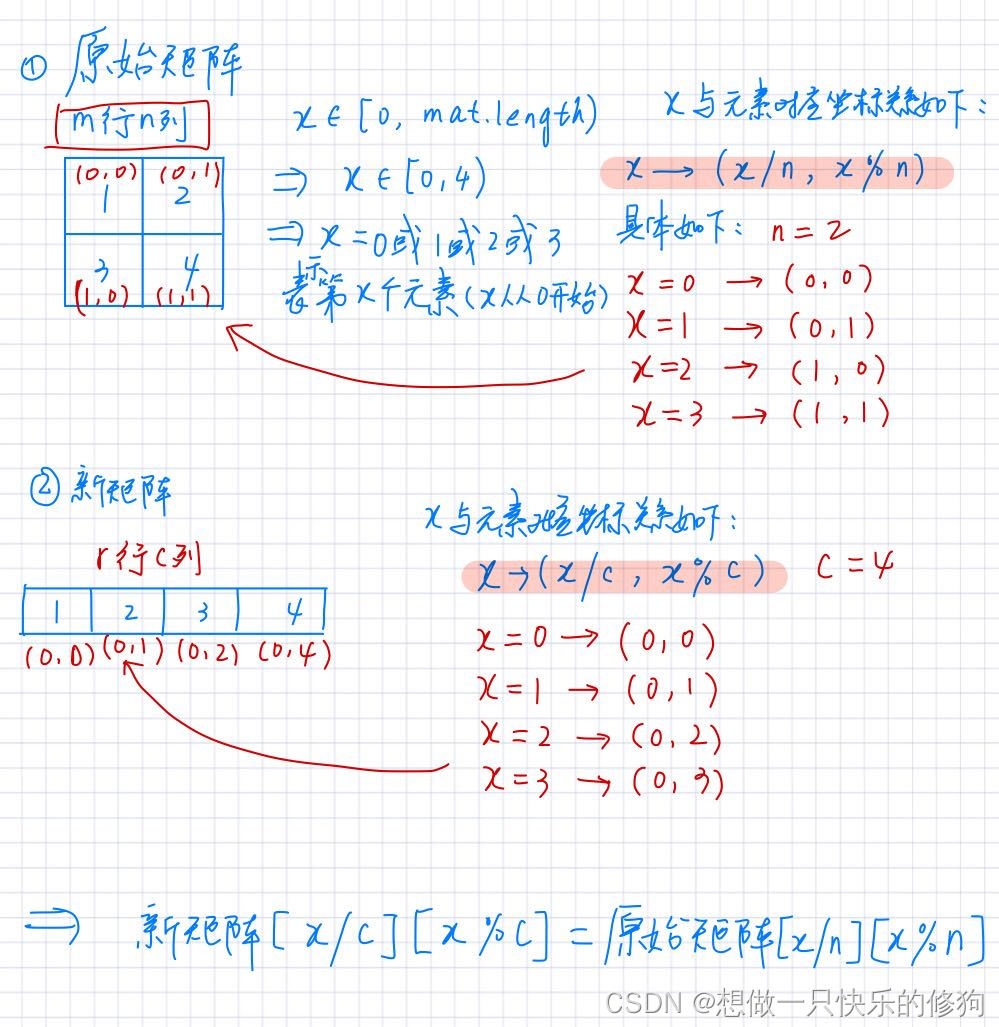 ① 原始矩阵
m行n列
(0,0) (0,1)
1 2
3 4
(1,0) (1,1)
x∈[0, mat.length)
⇒ x∈[0,4)
⇒ x=0或1或2或3
表示第x个元素(x从0开始)
x与元素对应坐标关系如下：
x → (x/n, x%n)
具体如下： n=2
x=0 → (0,0)
x=1 → (0,1)
x=2 → (1,0)
x=3 → (1,1)
② 新矩阵
r行c列
1 2 3 4
(0,0) (0,1) (0,2) (0,4)
x与元素对应坐标关系如下：
x→(x/c, x%c) c=4
x=0 → (0,0)
x=1 → (0,1)
x=2 → (0,2)
x=3 → (0,3)
⇒ 新矩阵[x/c][x%c]=原始矩阵[x/n][x%n]
CSDN @想做一只快乐的修狗